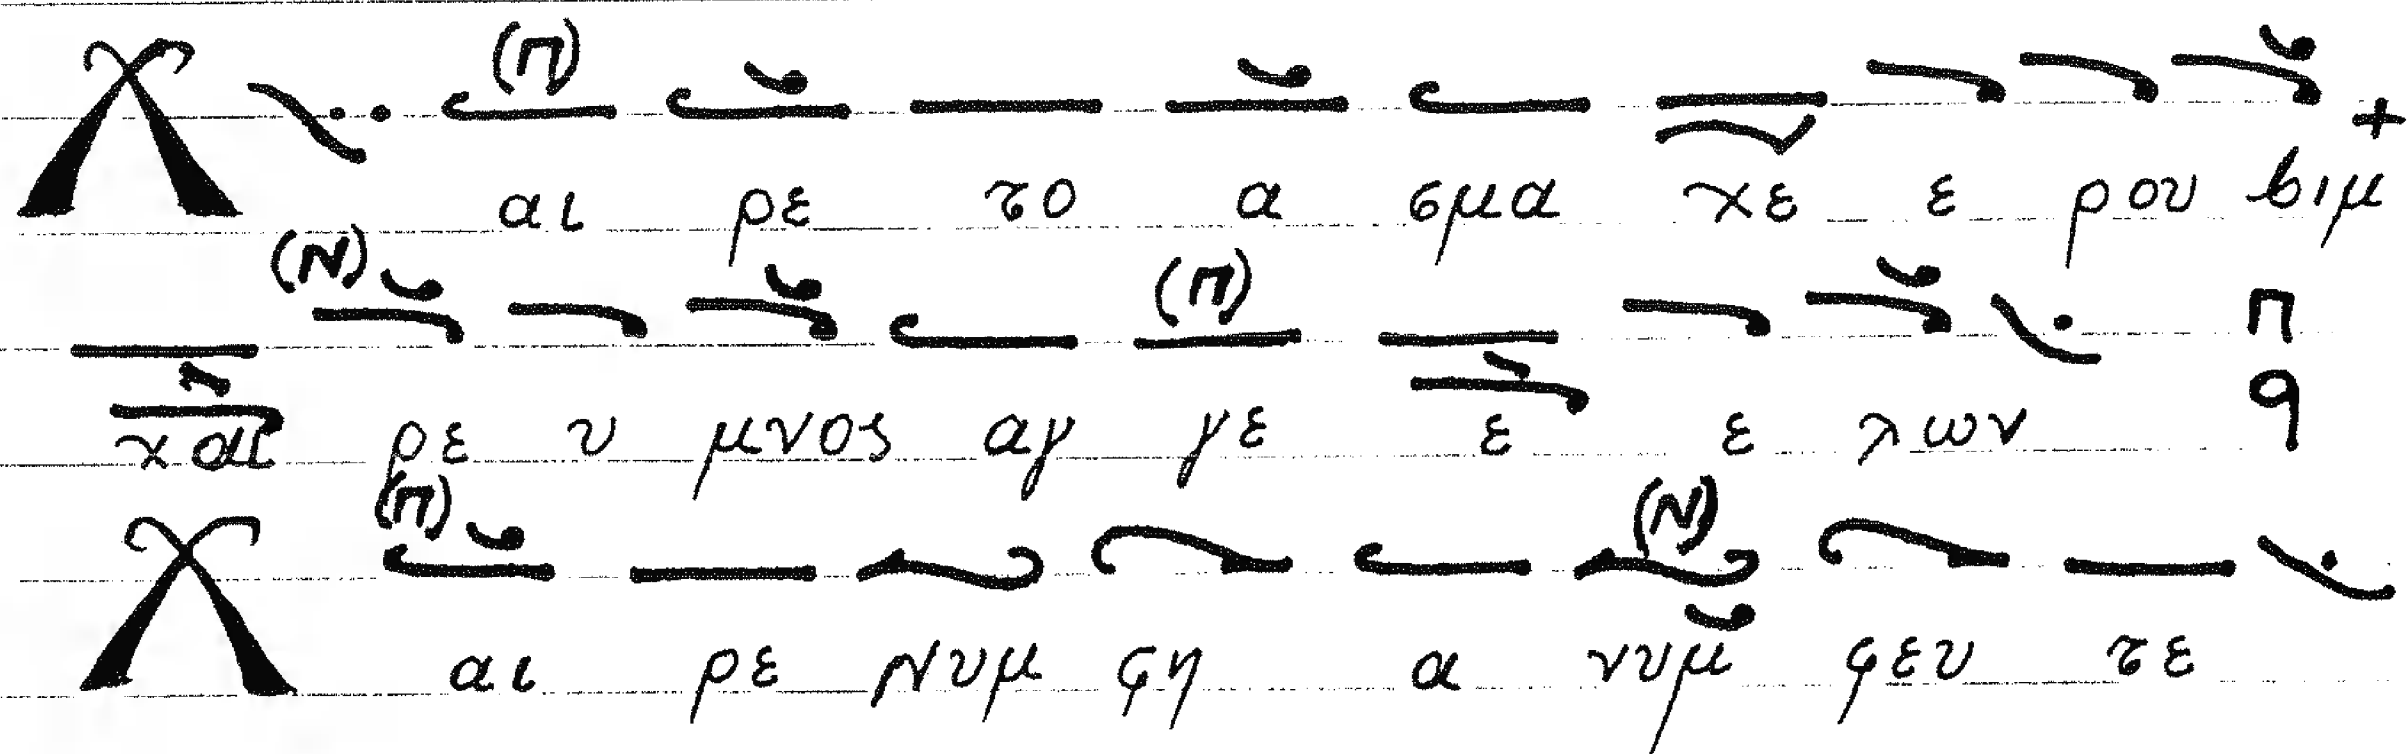 (Π)
Χ αι ρε το α σμα χε ε ρου βιμ
(Ν) (Π)
χαι ρε υ μνος αγ γε ε ε λων Π q
(Π) (Ν)
Χ αι ρε Νυμ φη α νυμ φευ τε